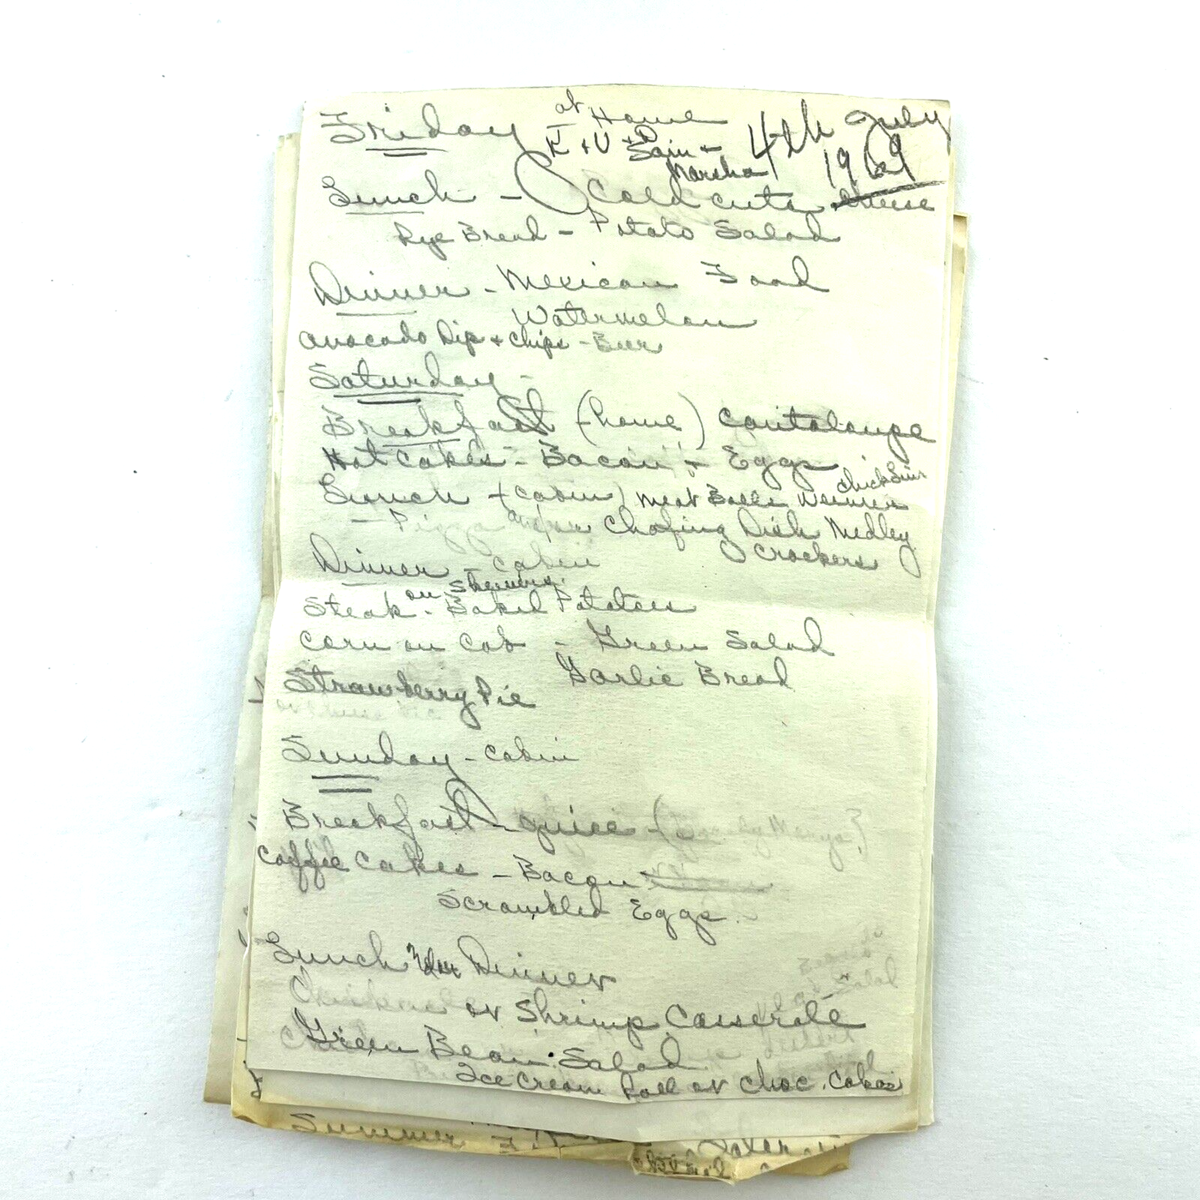 Friday at Home 4th July
K + U + Sain + 1969
Marsha
Lunch - Cold cuts cheese
Rye Bread - Potato Salad
Dinner - Mexican Food
Watermelon
Avocado Dip + chips - Beer
Saturday -
Breakfast (home) cantaloupe
Hot Cakes - Bacon + Eggs
Lunch - (cabin) Meat Balls
- Pizza Chafing Dish Medley
Crackers
Dinner - cabin
on Skewers
Steak - Baked Potatoes
corn on cob - Green Salad
Garlic Bread
Strawberry Pie
Sunday - cabin
Breakfast - juice
coffee cakes - Bacon
Scrambled Eggs
Lunch Dinner
or Shrimp Casserole
Green Bean Salad
Ice Cream Roll or choc.
Summer